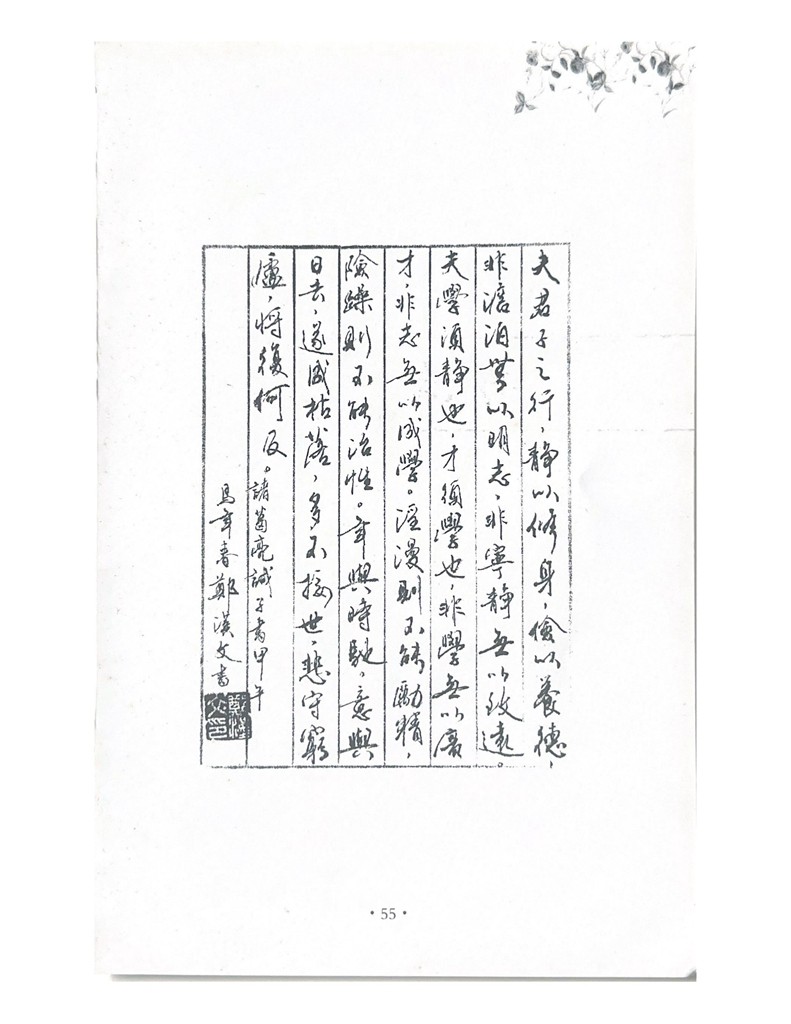 夫君子之行，靜以修身，儉以養德，
非澹泊無以明志，非寧靜無以致遠。
夫學須靜也，才須學也，非學無以廣
才，非志無以成學。淫漫則不能勵精，
險躁則不能治性。年與時馳，意與
日去，遂成枯落，多不接世，悲守窮
廬，將復何及。諸葛亮誡子書甲午
馬年春鄭漢文書
• 55 •